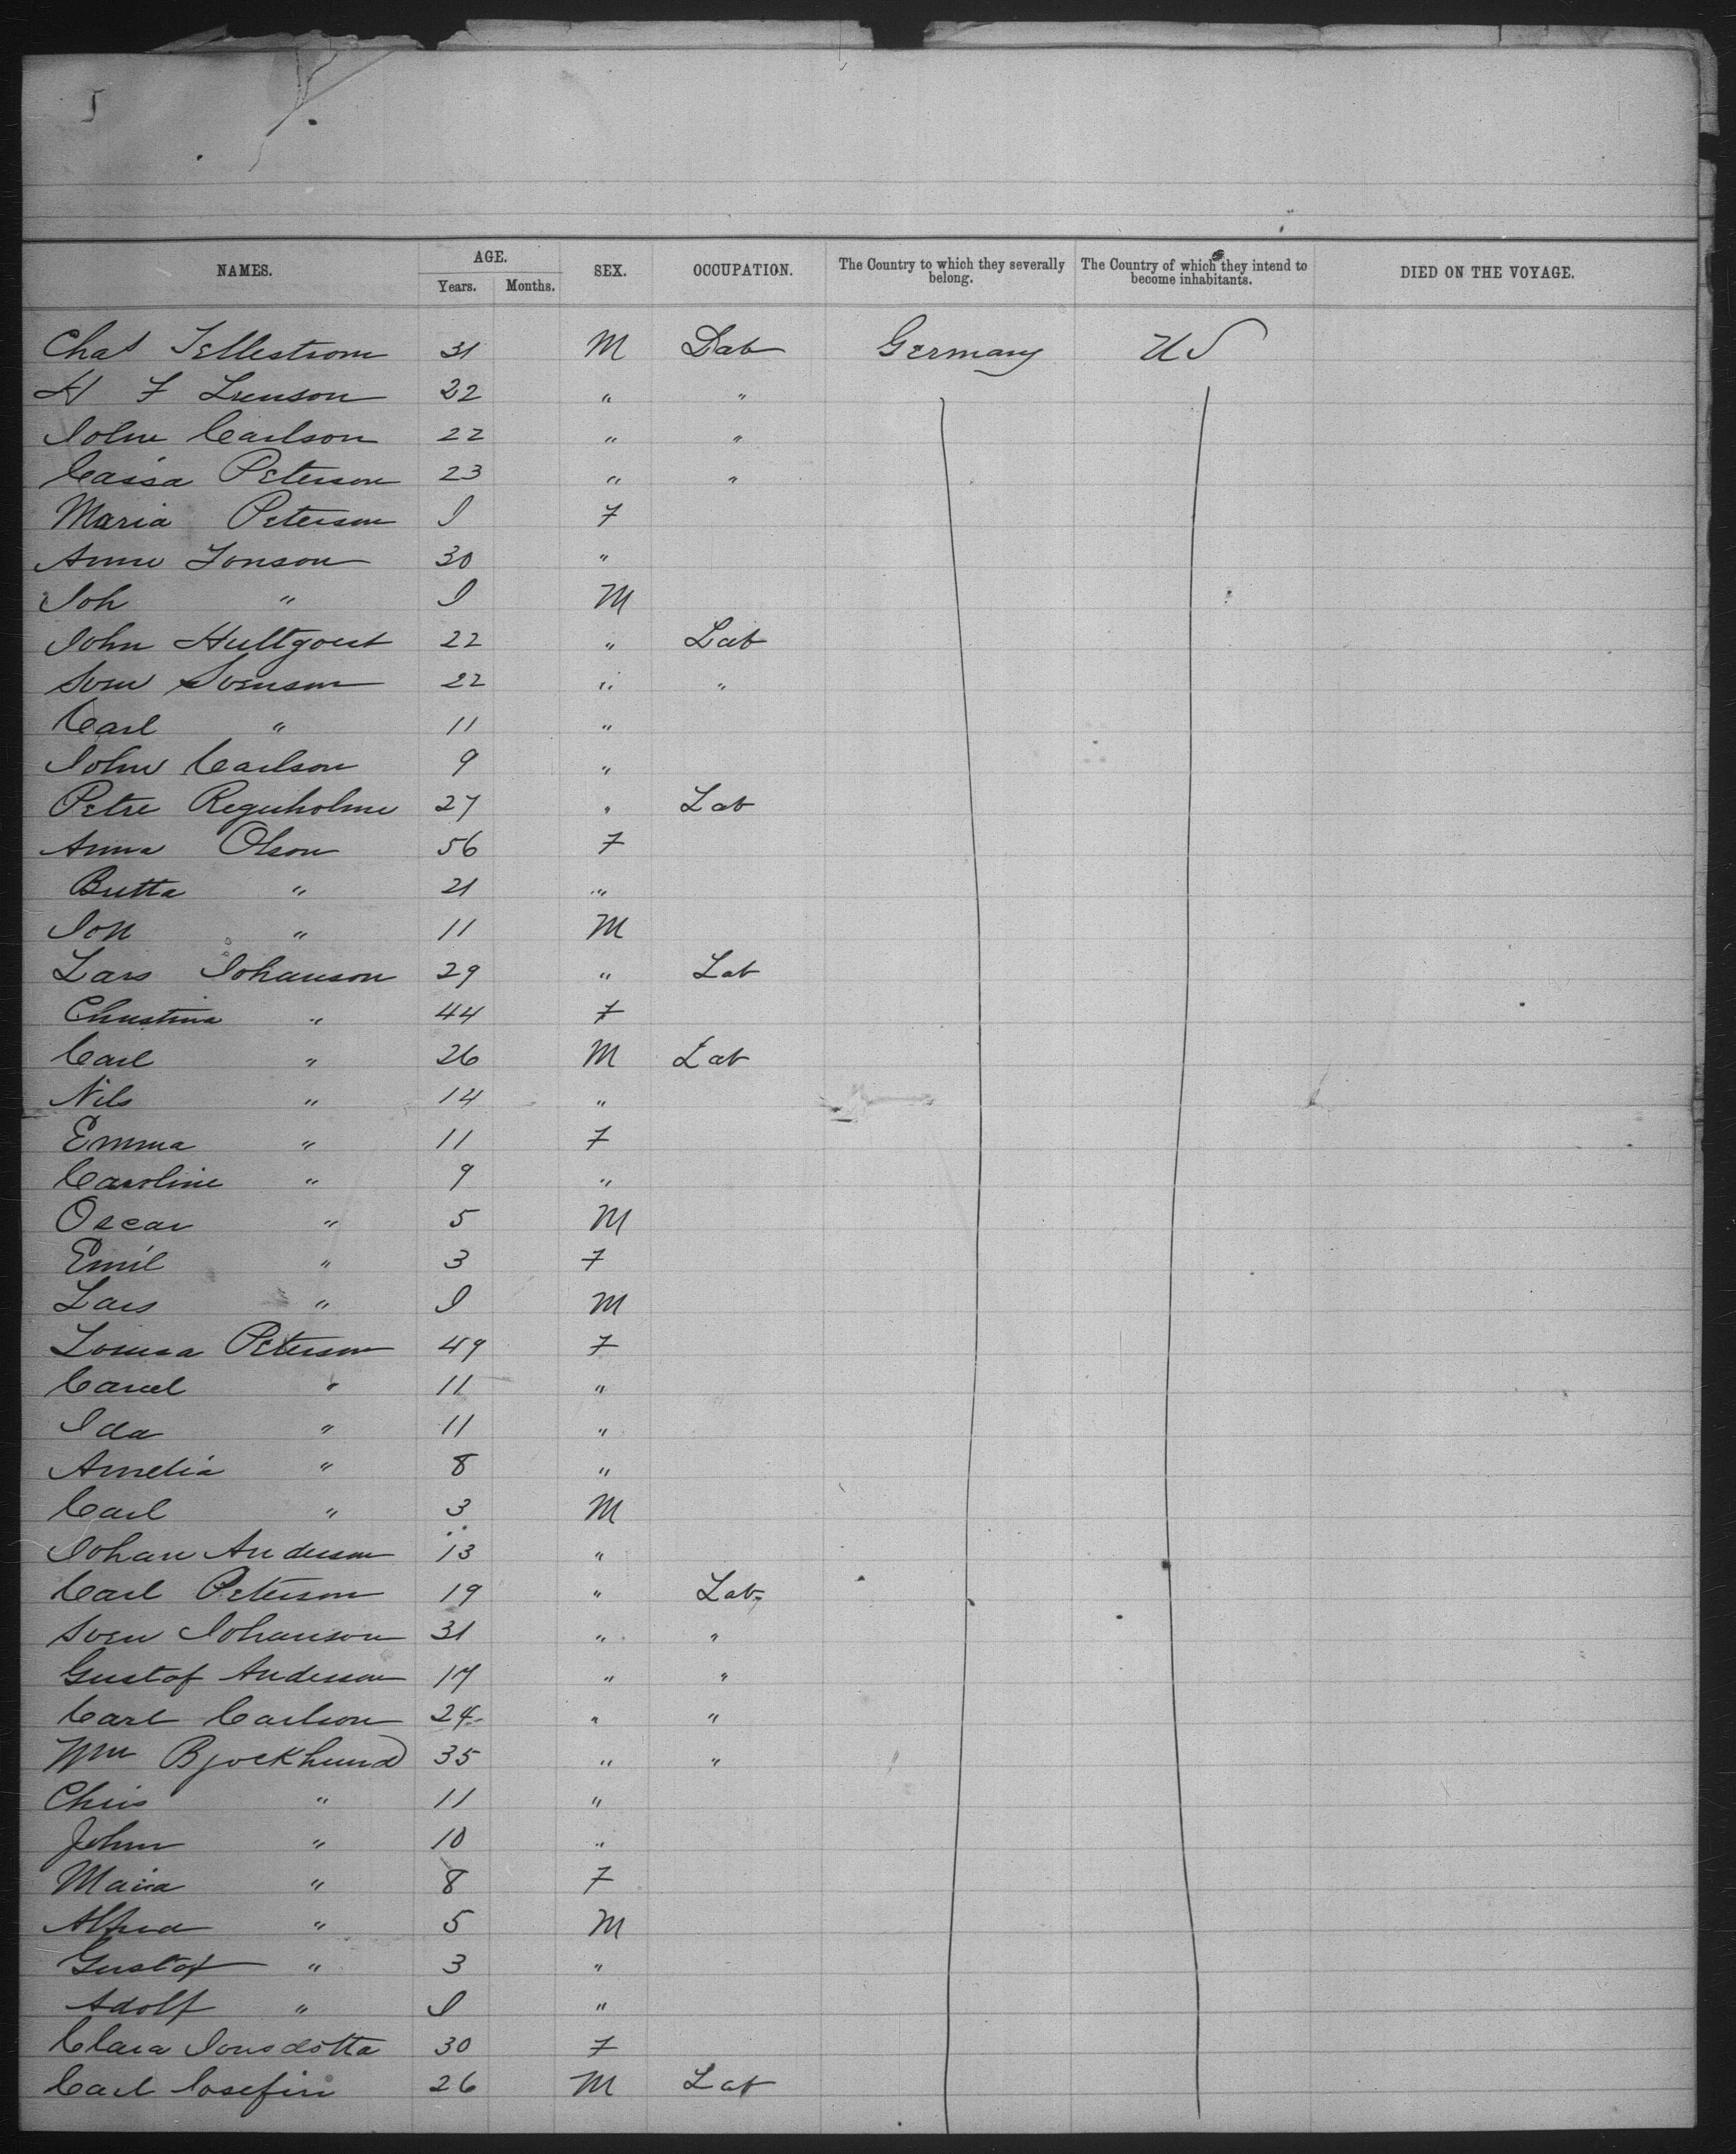 NAMES. AGE. Years. Months. SEX. OCCUPATION. The Country to which they severally belong. The Country of which they intend to become inhabitants. DIED ON THE VOYAGE.
Chas Tellestrom 31 M Lab Germany U S
H F Swenson 22 " "
John Carlson 22 " "
Caisa Peterson 23 " "
Maria Peterson I F
Anne Jonson 30 "
Joh " I M
John Hultqvist 22 " Lab
Sven Svenson 22 " "
Carl " 11 "
John Carlson 9 "
Petre 27 " Lab
Anna Olson 56 F
Britta " 21 "
Jon " 11 M
Lars Johanson 29 " Lab
Christina " 44 F
Carl " 26 M Lab
Nils " 14 "
Emma " 11 F
Caroline " 9 "
Oscar " 5 M
Emil " 3 F
Lars " I M
Louisa Peterson 49 F
" 11 "
Ida " 11 "
Amelia " 8 "
Carl " 3 M
Johan Anderson 13 "
Carl Peterson 19 " Lab
Sven Johanson 31 " "
Gustof Anderson 17 " "
Carl Carlson 24 " "
Wm Bjorkhund 35 " "
Chris " 11 "
John " 10 "
Maria " 8 F
Alfred " 5 M
Gustof " 3 "
Adolf " I "
Clara Jonsdotta 30 F
Carl Josefin 26 M Lab